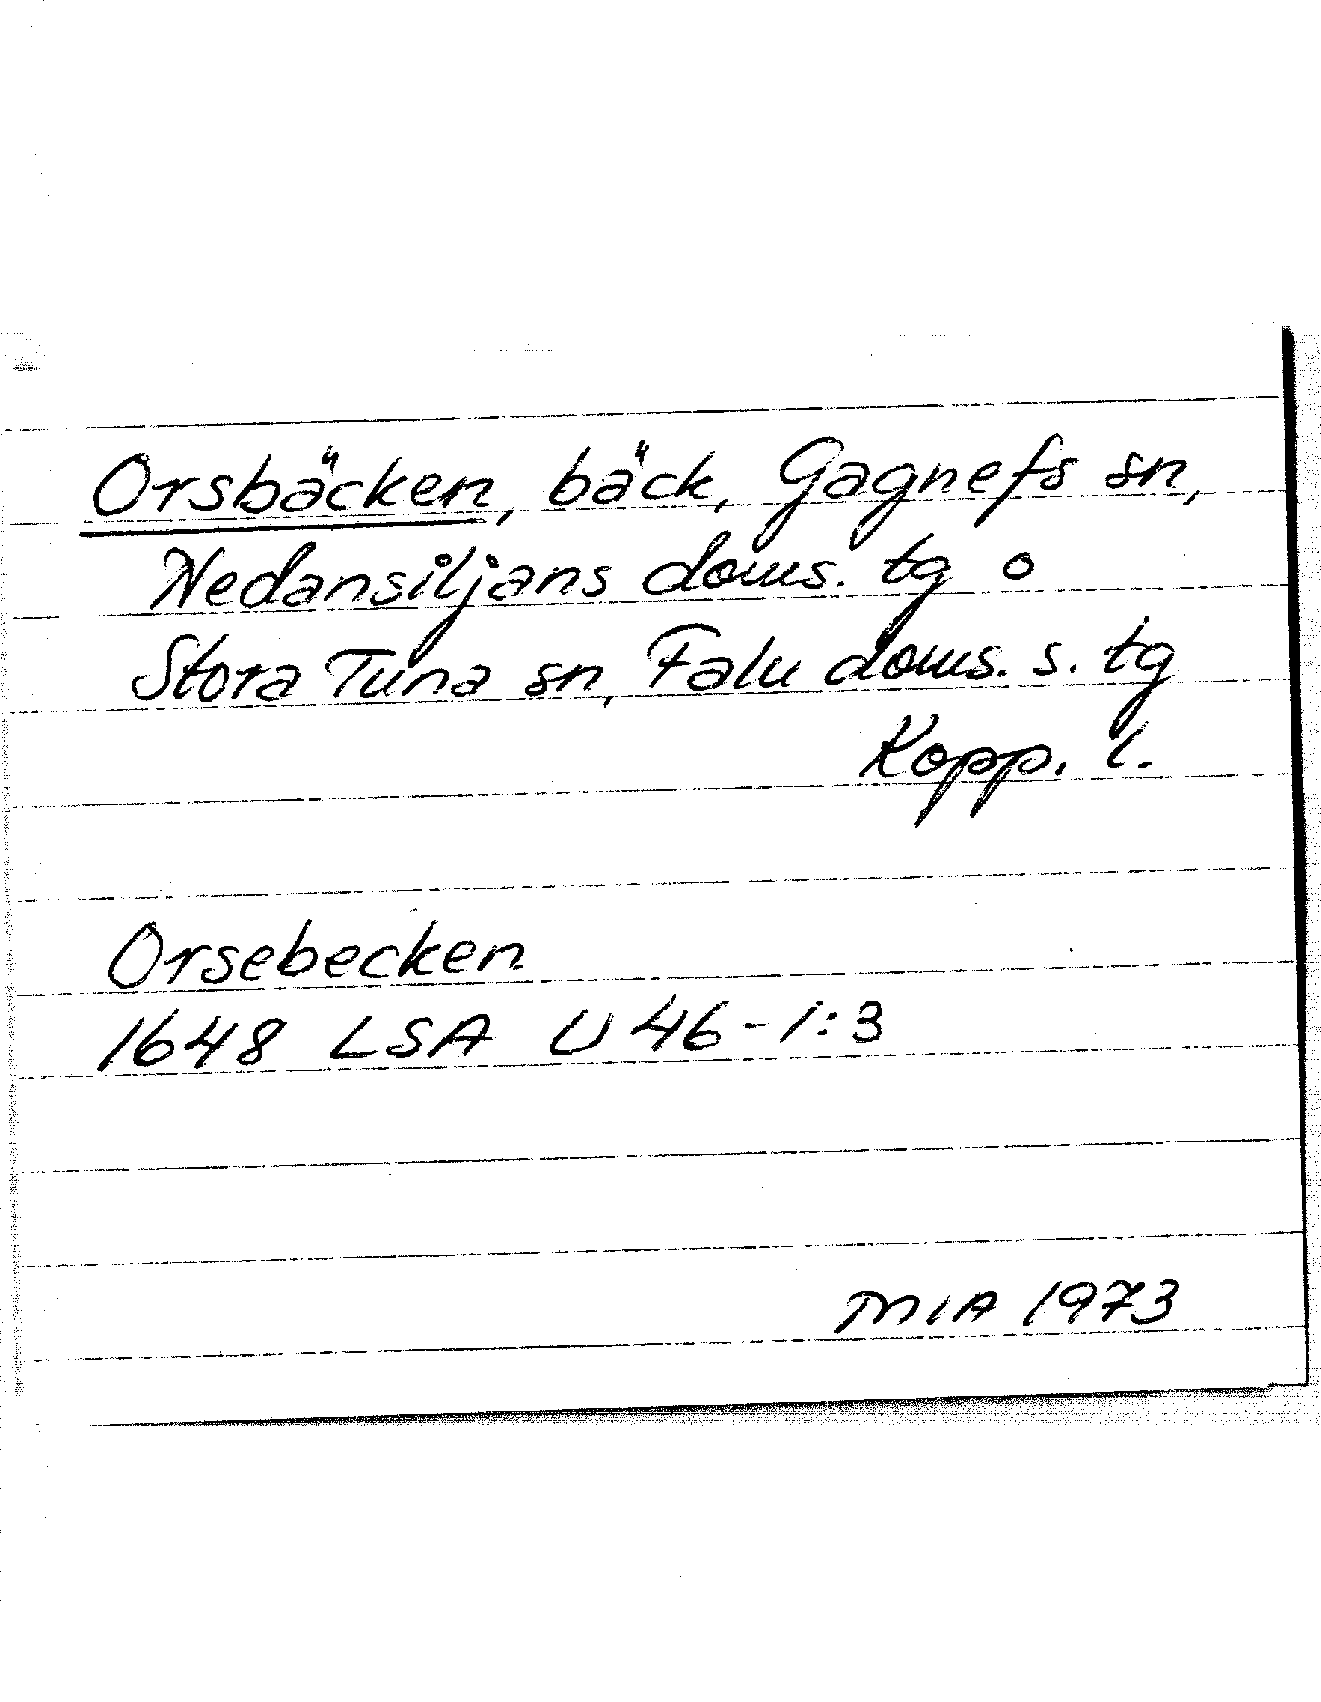 Orsbäcken, bäck, Gagnefs sn,
Nedansiljans doms. tg o
Stora Tuna sn, Falu doms. s. tg
Kopp. l.
Orsebecken
1648 LSA U 46-1:3
MIA 1973